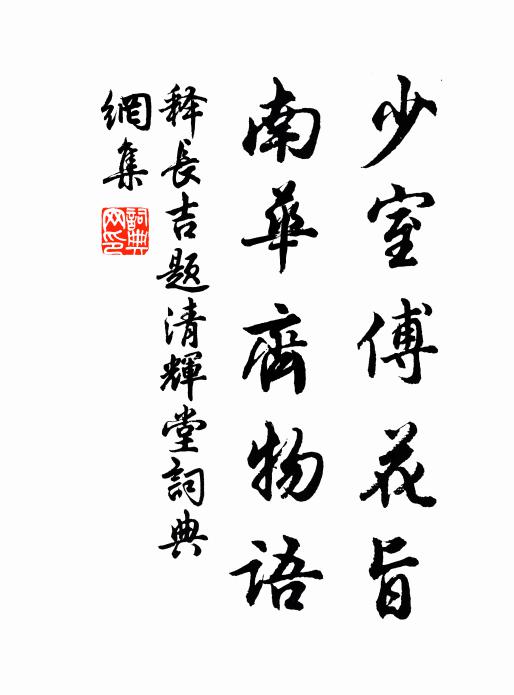 少室傅花旨
南華齊物語
释長吉题清輝堂詞典
網集
詞典
网印